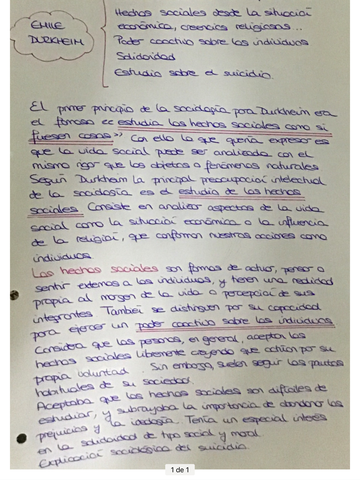 EMILE
DURKHEIM
Hechos sociales desde la situación
económica, creencias religiosas...
Poder coactivo sobre los individuos
Solidaridad
Estudio sobre el suicidio.
El primer principio de la sociología para Durkheim era
el famoso << estudia los hechos sociales como si
fuesen cosas>> Con ello lo que quería expresar es
que la vida social puede ser analizada con el
mismo rigor que los objetos o fenómenos naturales
Según Durkheim la principal preocupación intelectual
de la sociología es el estudio de los hechos
sociales Consiste en analizar aspectos de la vida
social como la situación económica o la influencia
de la religión, que conforman nuestras acciones como
individuos
Los hechos sociales son formas de actuar, pensar o
sentir externos a los individuos, y tienen una realidad
propia al margen de la vida o percepción de sus
integrantes También se distinguen por su capacidad
para ejercer un poder coactivo sobre los individuos
Considera que las personas, en general, aceptan los
hechos sociales libremente creyendo que actúan por su
propia voluntad. Sin embargo, suelen seguir las pautas
habituales de su sociedad.
Aceptaba que los hechos sociales son difíciles de
estudiar, y subrayaba la importancia de abandonar los
prejuicios y la ideología. Tenía un especial interés
en la solidaridad de tipo social y moral.
Explicación sociológica del suicidio.
1 de 1